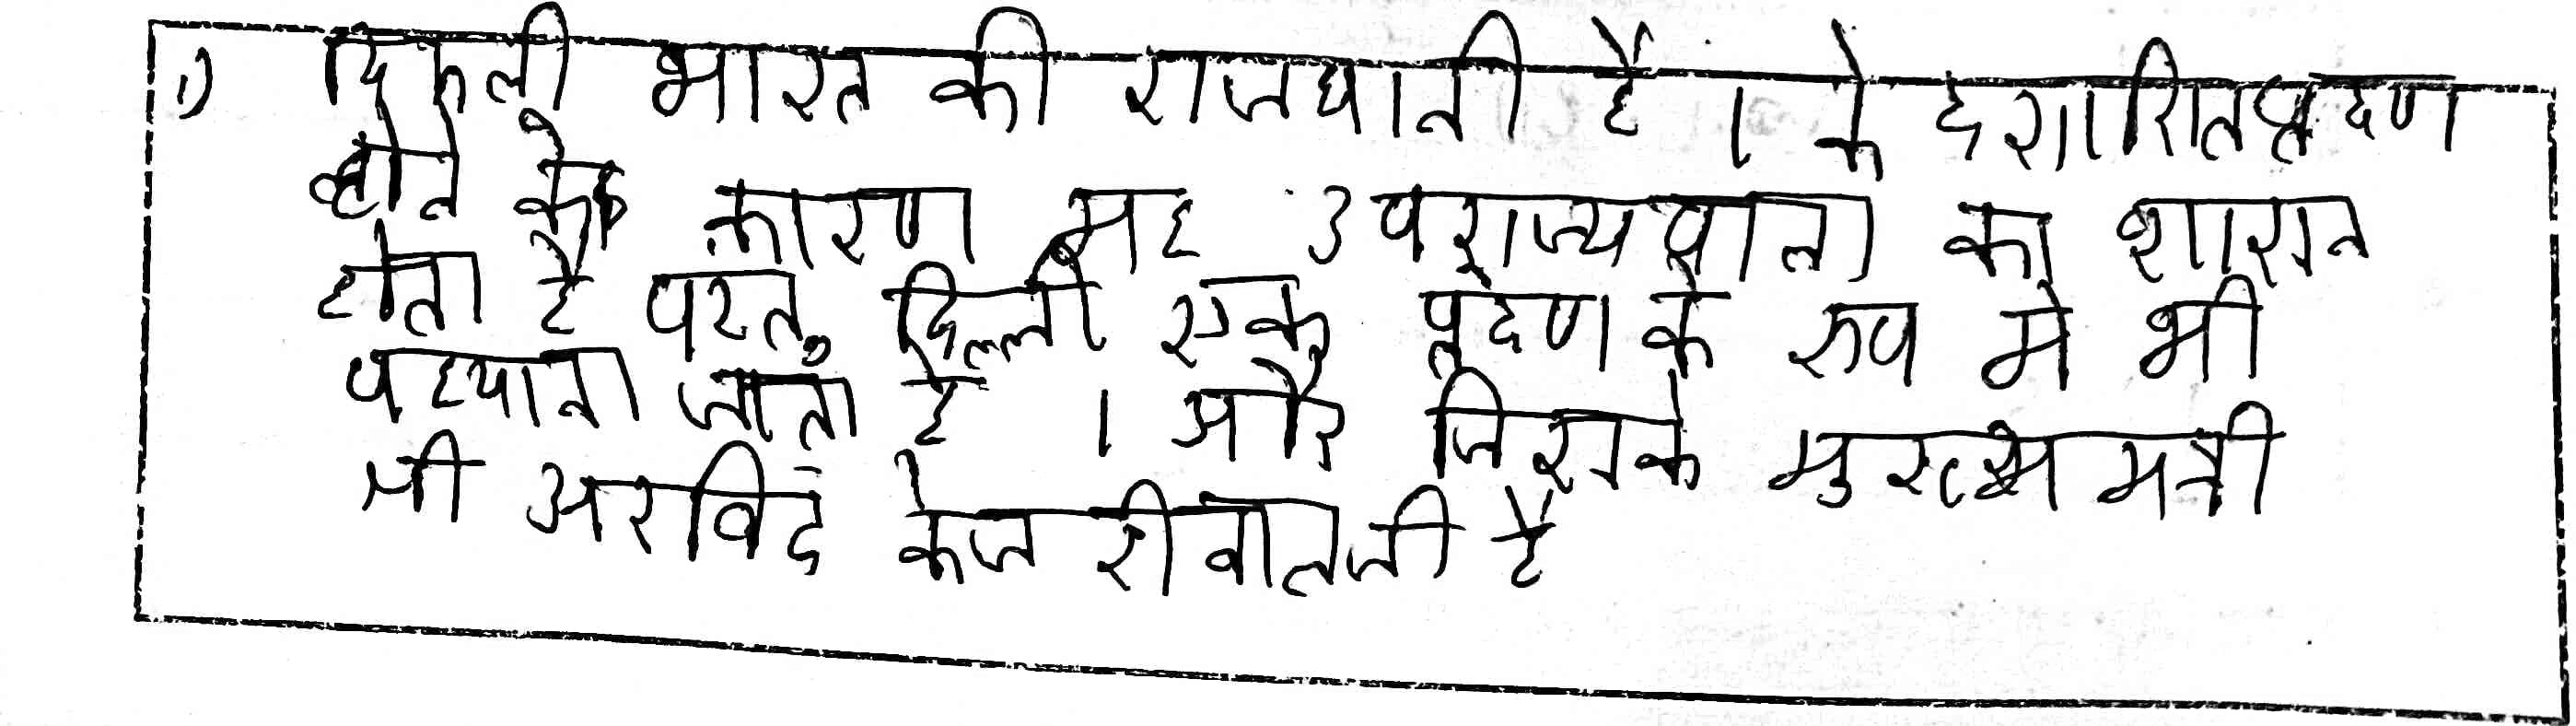 1) दिल्ली भारत की राजधानी है । केदशासितप्रदेण
होने के कारण यह उपराज्यपाल का शासन
होता है परतु दिल्ली एक प्रदेण के रुप मे भी
पहचाना जाता है । और जिसके मुख्य मत्री
श्री अरविदं केजरीवालजी है